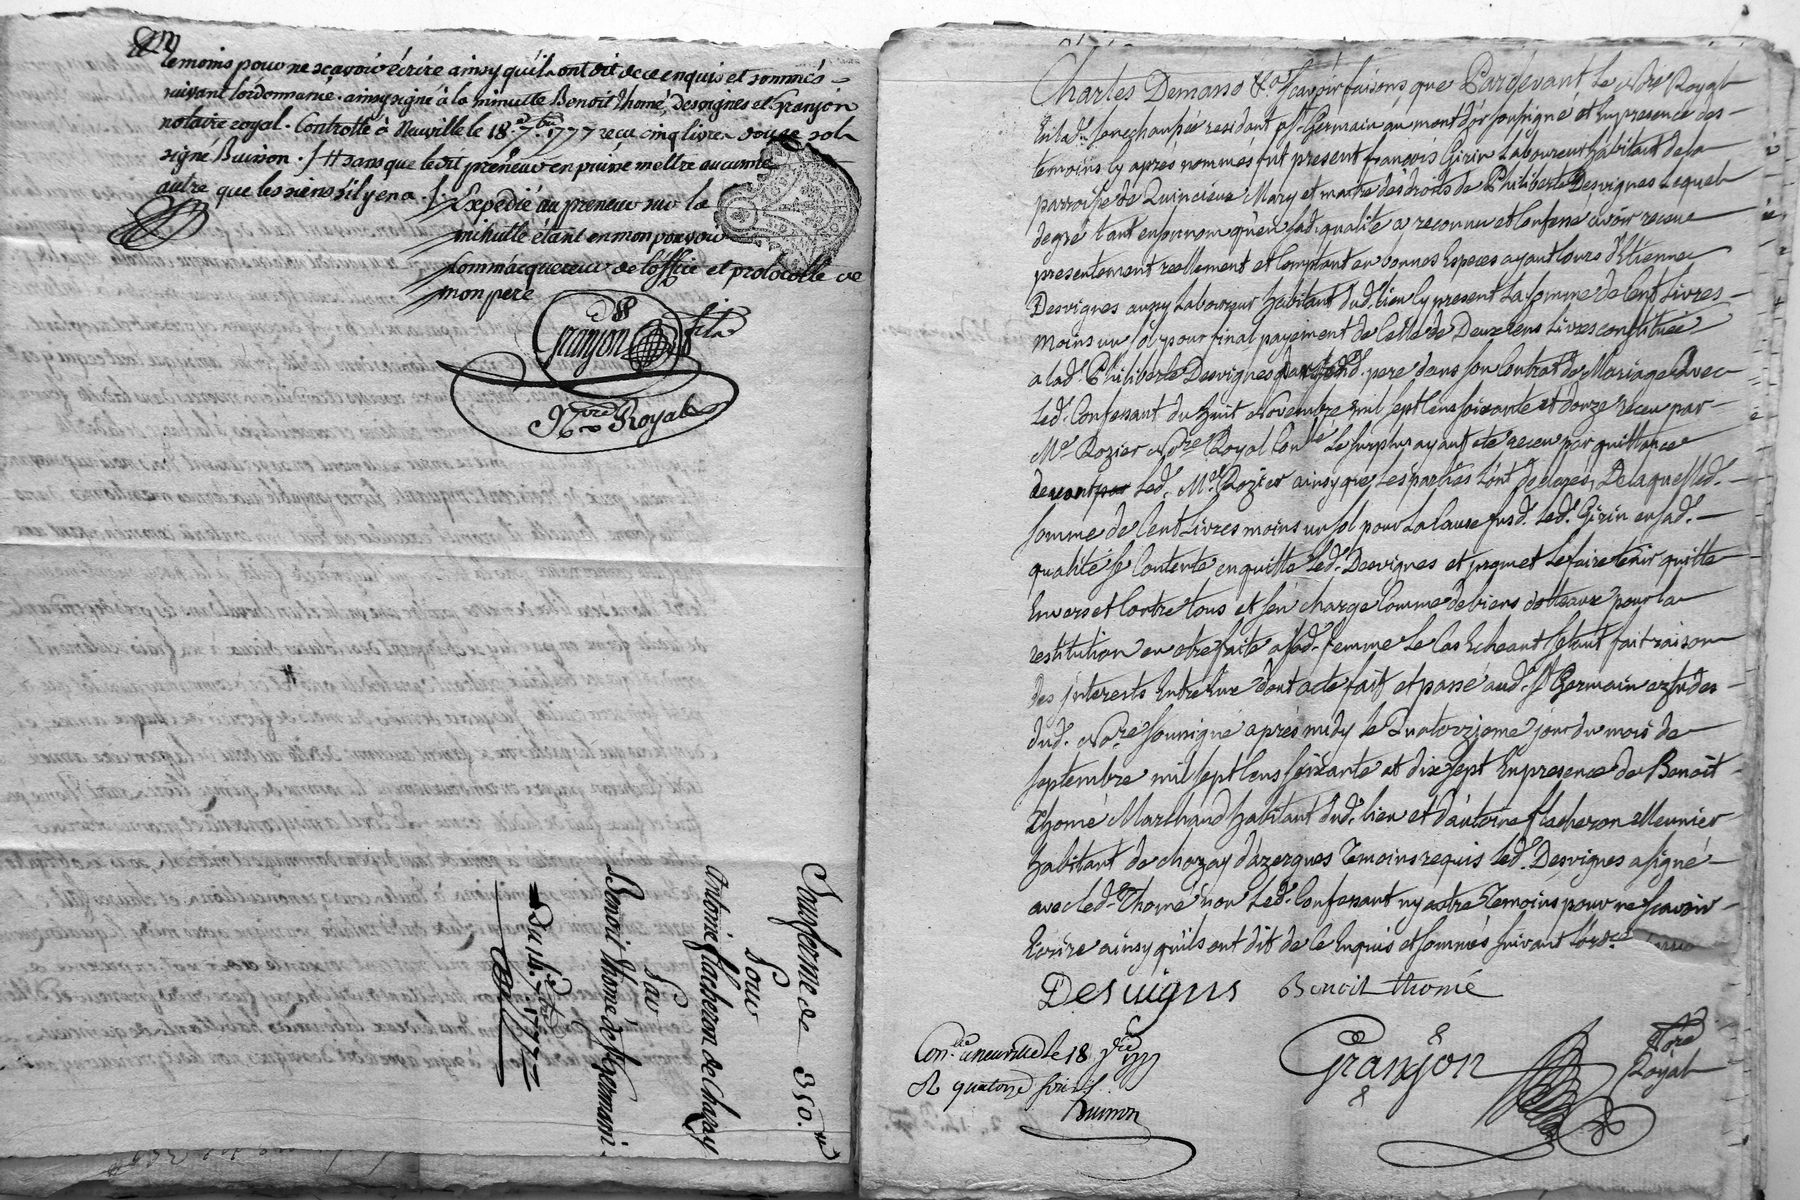 temoins pour ne scavoir écrire ainsy qu'ils ont dit de ce enquis et sommés
suivant l'ordonnance. ainsy signé à la minutte Benoit Thomé, Desvignes et Granjon
notaire royal. Controllé à Neuville le 18e 7bre 1777 reçu cinq livres douze sols
signé Buisson. /# sans que ledit preneur en puisse mettre aucunne
autre que les siens s'il y en a ./.
Expedié au preneur sur la
minutte étant en mon pouvoir
comm'acquereur de l'office et protocolle de
mon pere
Granjon fils
Nre Royal
Sousferme de 350.#
Pour
Antoine flacheron de Chazay
Par
Benoit Thomé de St germain
Du 14e 7bre 1777
Charles Demasso &a scavoir faisons que Pardevant Le Nore Royal
résidant a St Germain au mont d'or soussigné et En presence des
temoins cy après nommés fut present françois Girin Laboureur habitant de la
parroisse de Quincieux Mary et maitre des droits de Philiberte Desvignes Lequel
de gré tant en son nom qu'en sad. qualité a reconnu et Confessé avoir receu
presentement reellement et Comptant en bonnes Especes ayant Cours d'Etienne
Desvignes aussy Laboureur habitant dud. lieu cy present La somme de Cent Livres
moins un sol pour final payement de Celle de Deux Cens Livres constituée
a lad. Philiberte Desvignes par sond. pere dans son Contrat de Mariage Avec
Led. Confessant du huit Novembre mil sept Cens soixante et douze receu par
Me Rozier Nore Royal Conllé Le surplus ayant eté receu par quittance
devant Led. Me Rozier ainsy que Les parties L'ont declaré, De laquelle d.
somme de Cent Livres moins un sol pour La Cause susd. Led. Girin en sad.
qualité se Contente en quitte Led. Desvignes et promet Le faire tenir quitte
Envers et Contre tous et s'en charge Comme de biens dotteaux pour la
restitution en etre faite a sad. femme Le Cas Echeant s'etant fait raison
des Interests Entre Eux dont acte fait et passé aud. St Germain Etude
dud. Nore soussigné après midy le Quatorzieme jour du mois de
septembre mil sept Cens soixante et dix sept En presence de Benoit
Thomé Marchand habitant dud. lieu et d'antoine flacheron Meunier
habitant de chazay d'azergues temoins requis Led. Desvignes a signé
avec led. Thomé non Led. Confessant ny autre Temoins pour ne scavoir
Ecrire ainsy qu'ils ont dit de Ce Enquis et sommés suivant l'ordce
Desuignes Benoit thomé
Conllé a neuville le 18 7bre 1777
R quatorze sols
Buisson
Granjon
Nore
Royal